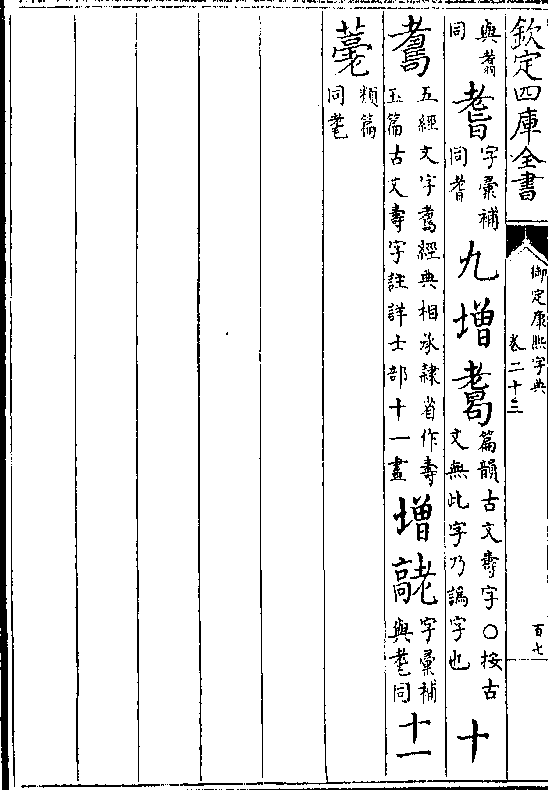 欽定四庫全書
御定康熙字典
卷二十三
百七
與
同
字彙補
同耆
九
增
篇韻古文壽字○按古
文無此字乃譌字也
十
五經文字經典相承隷省作壽
玉篇古文壽字註詳士部十一畫
增
字彙補
與耄同
十一
類篇
同耄